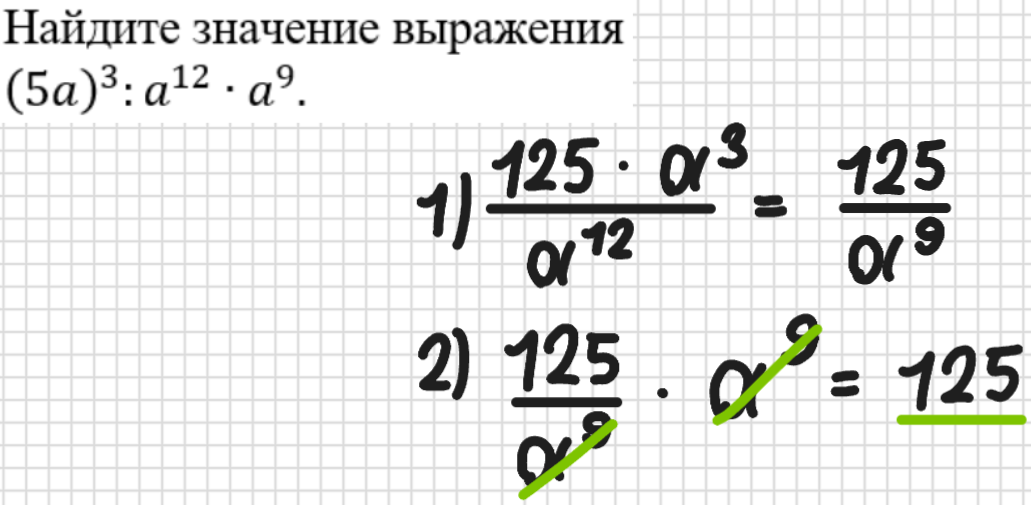 Найдите значение выражения
(5a)³: a¹² · a⁹.
1) 125 · a³ / a¹² = 125 / a⁹
2) 125 / a⁹ · a⁹ = 125